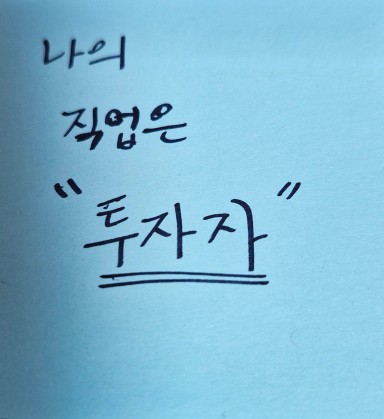 나의
직업은
"투자자"